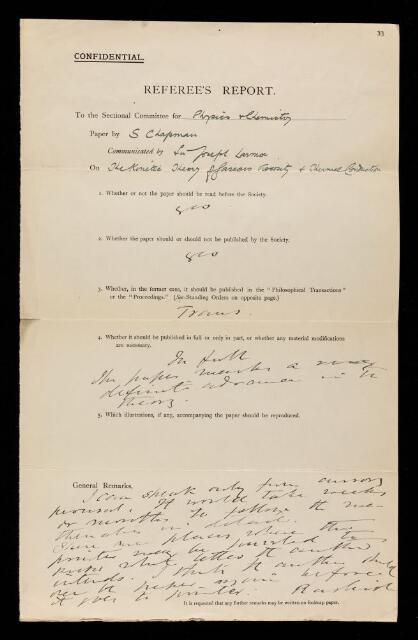 33
CONFIDENTIAL.
REFEREE'S REPORT.
To the Sectional Committee for Physics & Chemistry
Paper by S Chapman
Communicated by Sir Joseph Larmor
On The Kinetic Theory of Gaseous Viscosity & Thermal Conduction
1. Whether or not the paper should be read before the Society.
yes
2. Whether the paper should or should not be published by the Society.
yes
3. Whether, in the former case, it should be published in the "Philosophical Transactions"
or the "Proceedings." (See Standing Orders on opposite page.)
Trans.
4. Whether it should be published in full or only in part, or whether any material modifications
are necessary.
In full
The paper marks a very
definite advance in the
theory.
5. Which illustrations, if any, accompanying the paper should be reproduced.
General Remarks.
I can speak only from cursory
perusal. It would take weeks
or months to follow the
in detail.
There are places where the
printer may be puzzled to
know what letter the author
intends. I think the author should
over the paper again before
it goes to printer. Rayleigh
It is requested that any further remarks may be written on foolscap paper.